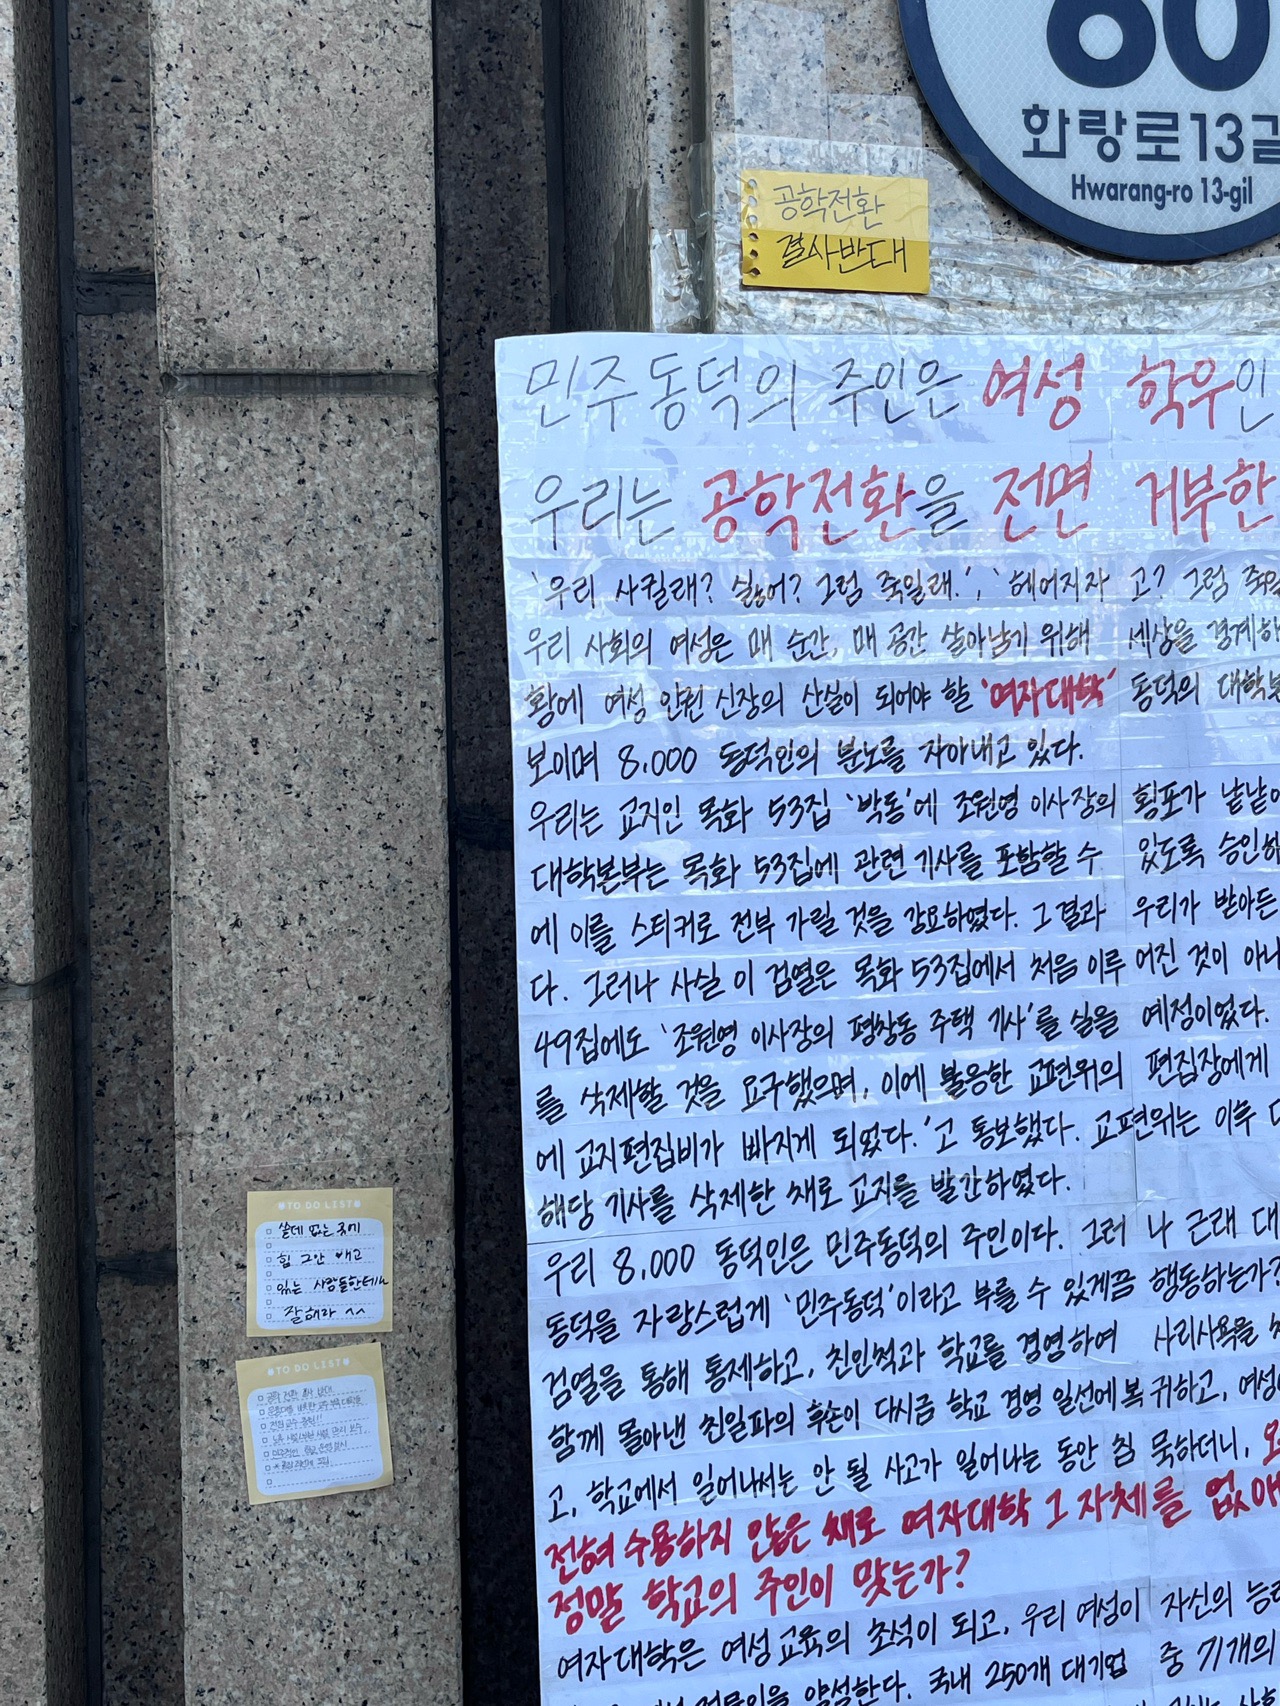 60
화랑로13길
Hwarang-ro 13-gil
공학전환
결사반대
민주동덕의 주인은 여성 학우인
우리는 공학전환을 전면 거부한
'우리 사귈래? 싫어? 그럼 죽일래.', '헤어지자고? 그럼 죽일
우리 사회의 여성은 매 순간, 매 공간 살아남기 위해 세상을 경계하
황에 여성 인권 신장의 산실이 되어야 할 '여자대학' 동덕의 대학본
보이며 8,000 동덕인의 분노를 자아내고 있다.
우리는 교지인 목화 53집 '박동'에 조원영 이사장의 횡포가 낱낱이
대학본부는 목화 53집에 관련 기사를 포함할 수 있도록 승인하
에 이를 스티커로 전부 가릴 것을 강요하였다. 그 결과 우리가 받아든
다. 그러나 사실 이 검열은 목화 53집에서 처음 이루어진 것이 아니
49집에도 '조원영 이사장의 평창동 주택 기사'를 실을 예정이었다.
를 삭제할 것을 요구했으며, 이에 불응한 교편위의 편집장에게
에 교지편집비가 빠지게 되었다.'고 통보했다. 교편위는 이후
해당 기사를 삭제한 채로 교지를 발간하였다.
우리 8,000 동덕인은 민주동덕의 주인이다. 그러나 근래 대
동덕을 자랑스럽게 '민주동덕'이라고 부를 수 있게끔 행동하는가?
검열을 통해 통제하고, 친인척과 학교를 경영하여 사리사욕을
함께 몰아낸 친일파의 후손이 다시금 학교 경영 일선에 복귀하고, 여성
고, 학교에서 일어나서는 안 될 사고가 일어나는 동안 침묵하더니,
전혀 수용하지 않은 채로 여자대학 그 자체를 없애
정말 학교의 주인이 맞는가?
여자대학은 여성 교육의 초석이 되고, 우리 여성이 자신의 능력
양성한다. 국내 250개 대기업 중 71개의
TO DO LIST
쓸데 없는 곳에
힘 그만 빼고
있는 사람들한테나
잘해라 ^^
TO DO LIST
공학 전환 결사 반대